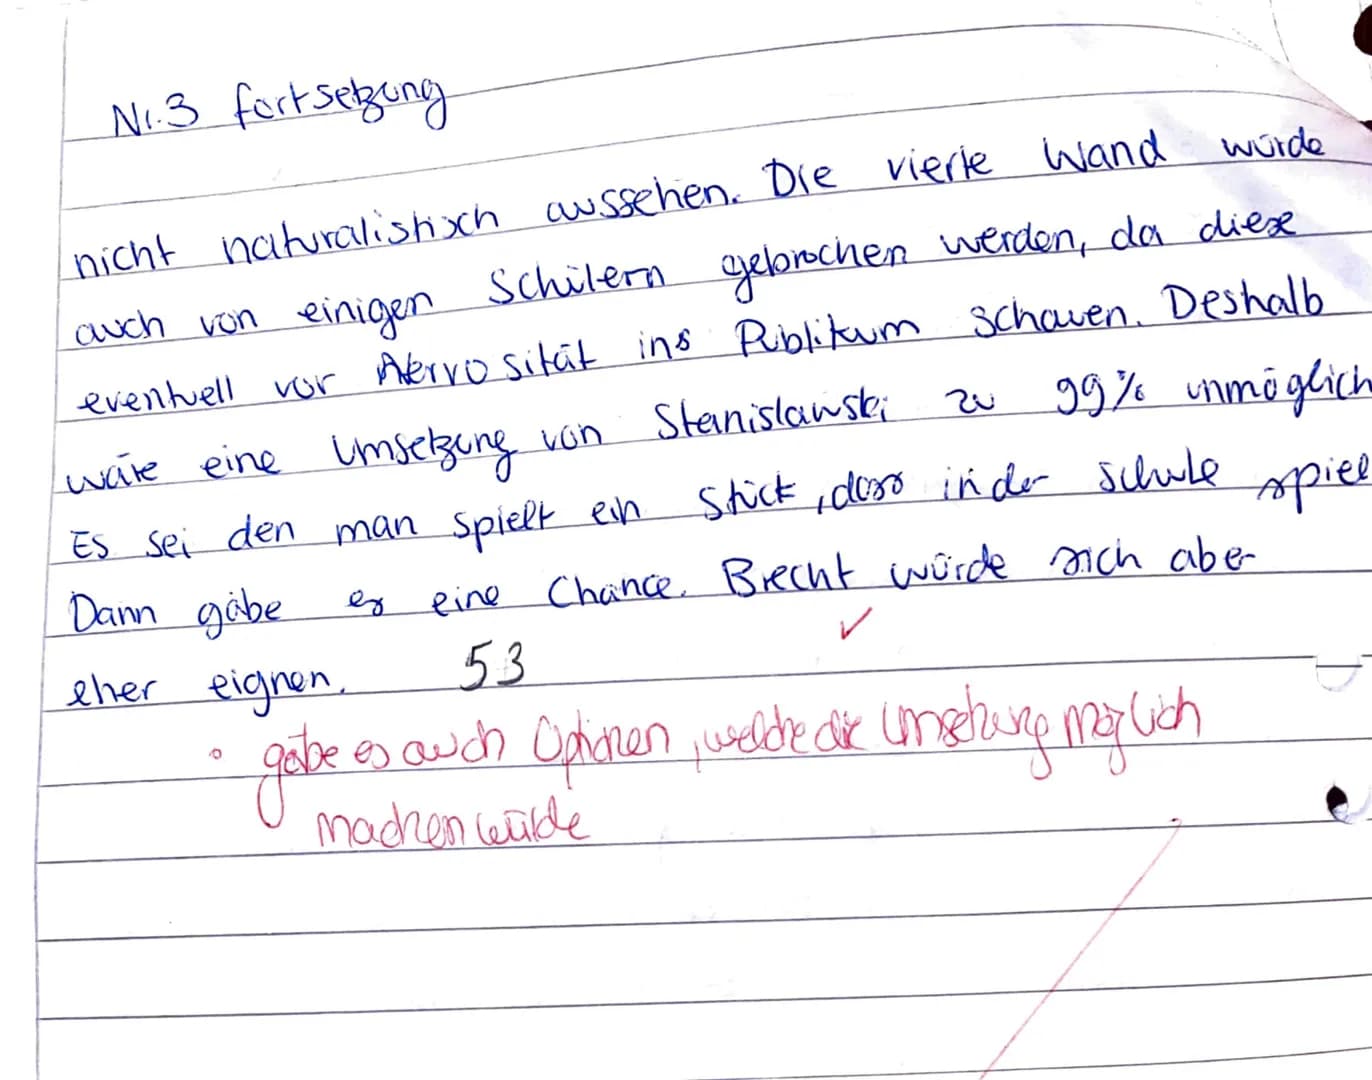 Nr.3 fortsetzung
nicht naturalistisch aussehen. Die vierte Wand würde
auch von einigen Schülern gebrochen werden, da diese
eventuell vor Nervosität ins Publikum schauen. Deshalb
wäre eine Umsetzung von Stanislawski zu 99% unmöglich
Es sei den man spielt ein Stück, dass in der Schule spiel
Dann gäbe es eine Chance. Brecht würde sich aber
eher eignen. 53
gäbe es auch Optionen, welche die Umsetzung möglich
machen würde